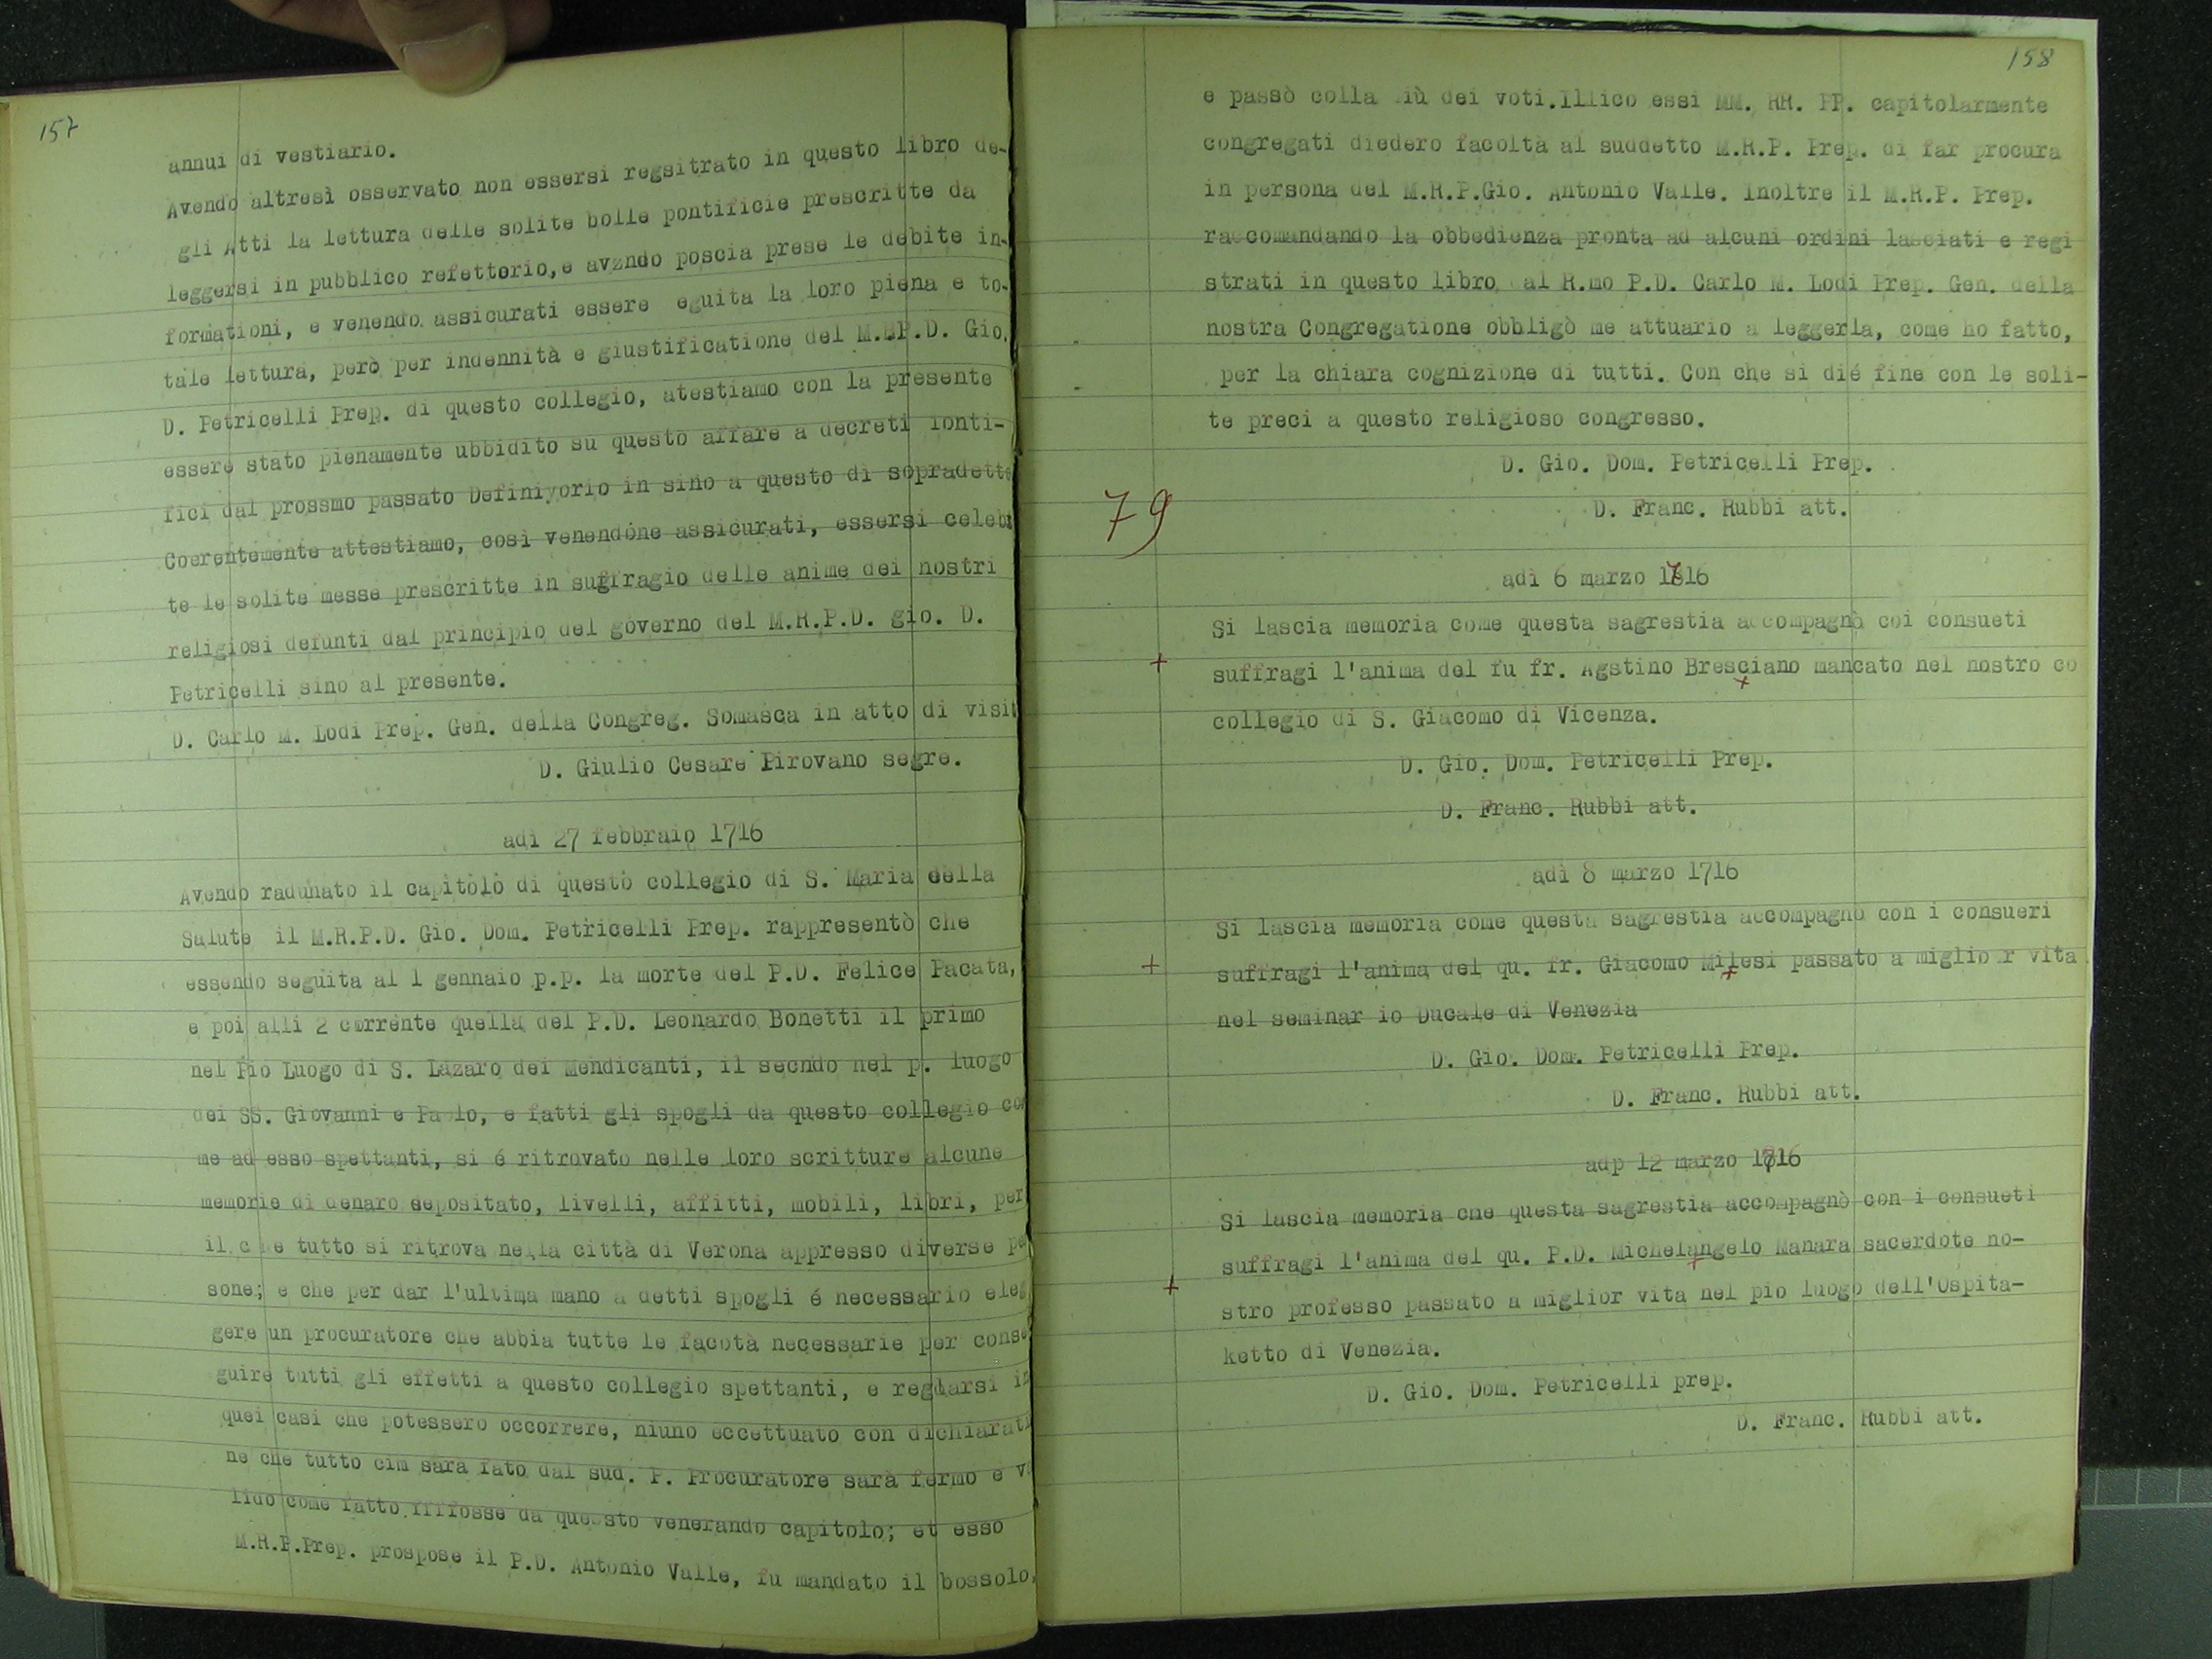 157
annui di vestiario.
Avendo altresì osservato non essersi regsitrato in questo libro de-
gli Atti la lettura delle solite bolle pontificie prescritte da
leggersi in pubblico refettorio,e avzndo poscia prese le debite in-
formationi, e venendo assicurati essere eguita la loro piena e to-
tale lettura, però per indennità e giustificatione del M.RP.D. Gio.
D. Petricelli Prep. di questo collegio, atestiamo con la presente
essere stato pienamente ubbidito su questo affare a decreti Ponti-
fici dal prossmo passato Definiyorio in sino a questo dì sopradetto
Coerentemente attestiamo, così venendone assicurati, essersi celebr
te le solite messe prescritte in suffragio delle anime dei nostri
religiosi defunti dal principio del governo del M.R.P.D. gio. D.
Petricelli sino al presente.
D. Carlo M. Lodi Prep. Gen. della Congreg. Somasca in atto di visit
D. Giulio Cesare Pirovano segre.
adì 27 febbraio 1716
Avendo radunato il capitolo di questo collegio di S. Maria della
Salute il M.R.P.D. Gio. Dom. Petricelli Prep. rappresentò che
essendo seguita al 1 gennaio p.p. la morte del P.D. Felice Pacata,
e poi alli 2 corrente quella del P.D. Leonardo Bonetti il primo
nel Pio Luogo di S. Lazaro dei Mendicanti, il secndo nel p. luogo
dei SS. Giovanni e Paolo, e fatti gli spogli da questo collegio co
me ad esso spettanti, si é ritrovato nelle loro scritture alcune
memorie di denaro depositato, livelli, affitti, mobili, libri, per
il che tutto si ritrova nella città di Verona appresso diverse pe
sone; e che per dar l'ultima mano a detti spogli é necessario eleg
gere un procuratore che abbia tutte le facotà necessarie per conse
guire tutti gli effetti a questo collegio spettanti, e regularsi in
quei casi che potessero occorrere, niuno eccettuato con dichiarati
ne che tutto cim sarà fato dal sud. P. Procuratore sarà fermo e va
lido come fatto fosse da questo venerando capitolo; et esso
M.R.P.Prep. prospose il P.D. Antonio Valle, fu mandato il bossolo,
158
e passò colla iù dei voti.Illico essi MM. RR. PP. capitolarmente
congregati diedero facoltà al suddetto M.R.P. Prep. di far procura
in persona del M.R.P.Gio. Antonio Valle. Inoltre il M.R.P. Prep.
raccomandando la obbedienza pronta ad alcuni ordini lasciati e regi
strati in questo libro dal R.mo P.D. Carlo M. Lodi Prep. Gen. della
nostra Congregatione obbligò me attuario a leggerla, come ho fatto,
per la chiara cognizione di tutti. Con che si dié fine con le soli-
te preci a questo religioso congresso.
D. Gio. Dom. Petricelli Prep.
D. Franc. Rubbi att.
79
adì 6 marzo 1716
Si lascia memoria come questa sagrestia accompagnò coi consueti
+ suffragi l'anima del fu fr. Agstino Bresciano mancato nel nostro co
collegio di S. Giacomo di Vicenza.
D. Gio. Dom. Petricelli Prep.
D. Franc. Rubbi att.
adì 8 marzo 1716
Si lascia memoria come questa sagrestia accompagnò con i consueri
+ suffragi l'anima del qu. fr. Giacomo Milesi passato a miglio r vita
nel seminar io Ducale di Venezia
D. Gio. Dom. Petricelli Prep.
D. Franc. Rubbi att.
adp 12 marzo 1716
Si lascia memoria che questa sagrestia accompagnò con i consueti
suffragi l'anima del qu. P.D. Michelangelo Manara sacerdote no-
+ stro professo passato a miglior vita nel pio luogo dell'Ospita-
ketto di Venezia.
D. Gio. Dom. Petricelli prep.
D. Franc. Rubbi att.